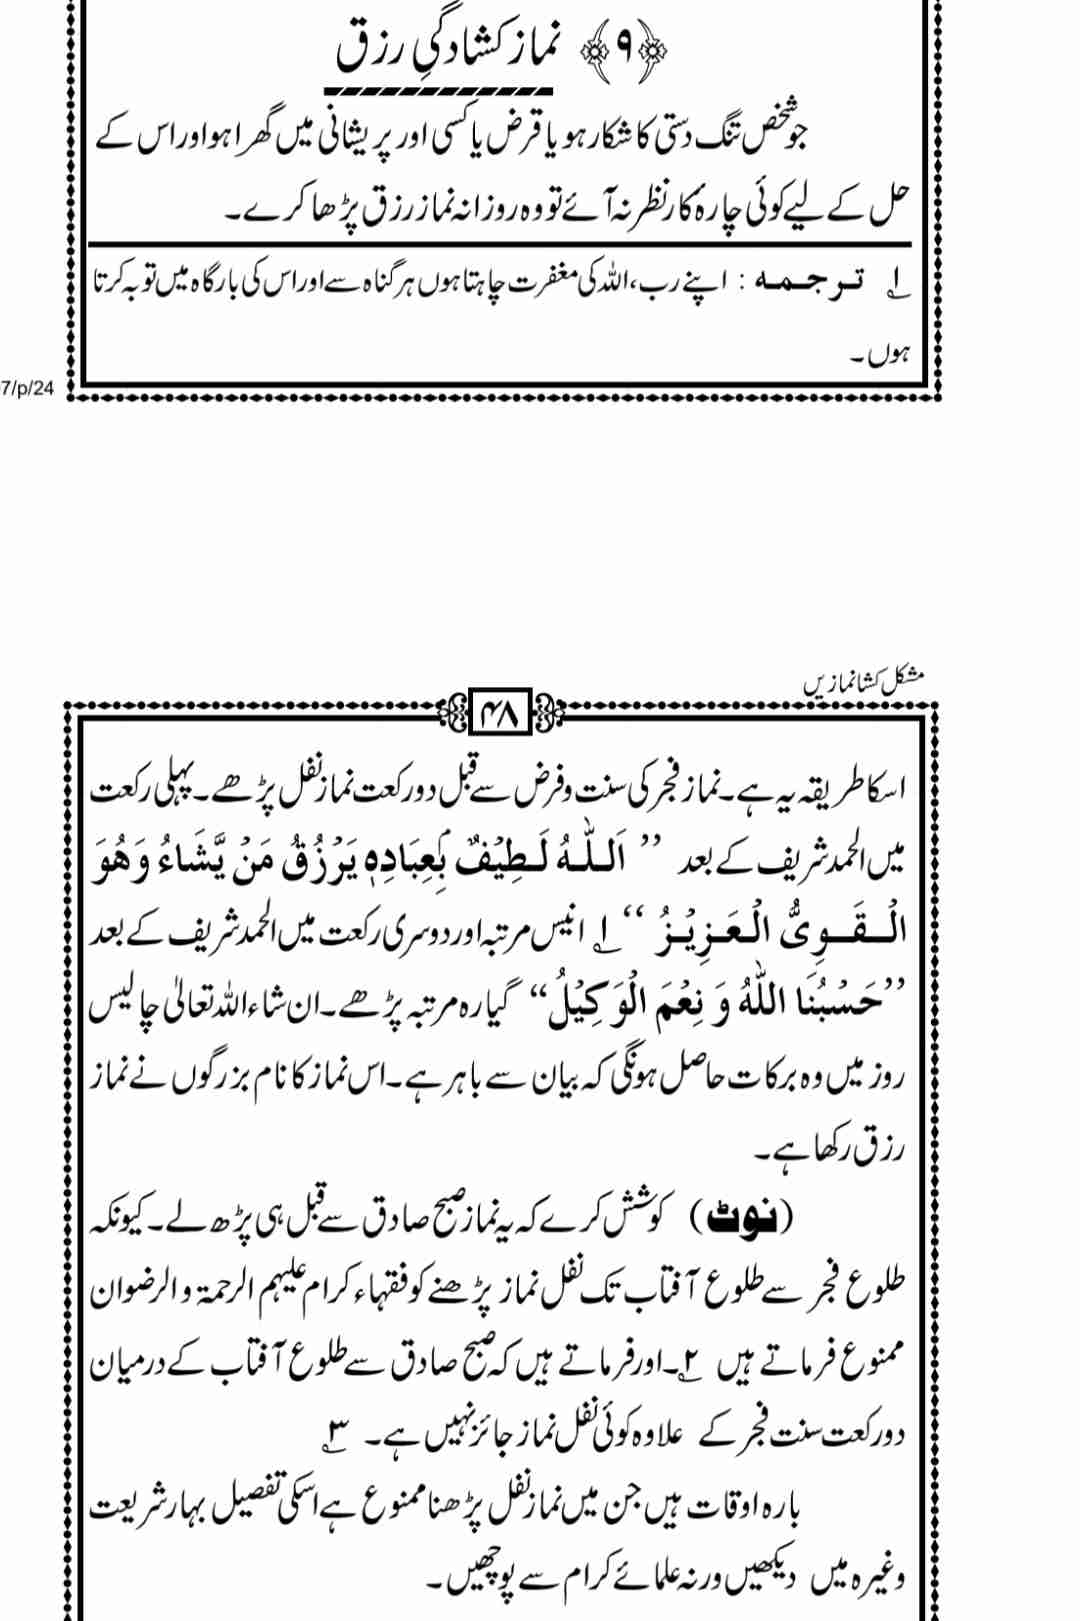 ﴿۹﴾ نماز کشادگیِ رزق
جو شخص تنگ دستی کا شکار ہو یا قرض یا کسی اور پریشانی میں گھرا ہو اور اس کے
حل کے لیے کوئی چارۂ کار نظر نہ آئے تو وہ روزانہ نماز رزق پڑھا کرے۔
۱؎ ترجمہ : اپنے رب، اللہ کی مغفرت چاہتا ہوں ہر گناہ سے اور اس کی بارگاہ میں توبہ کرتا
ہوں۔
7/p/24
مشکل کشا نمازیں
۴۸
اسکا طریقہ یہ ہے۔ نماز فجر کی سنت و فرض سے قبل دو رکعت نماز نفل پڑھے۔ پہلی رکعت
میں الحمد شریف کے بعد ’’ اَللّٰہُ لَطِیْفٌ بِعِبَادِہٖ یَرْزُقُ مَنْ یَّشَاءُ وَھُوَ
الْقَوِیُّ الْعَزِیْزُ ‘‘ ۱؎ انیس مرتبہ اور دوسری رکعت میں الحمد شریف کے بعد
’’حَسْبُنَا اللّٰہُ وَ نِعْمَ الْوَکِیْلُ‘‘ گیارہ مرتبہ پڑھے۔ ان شاء اللہ تعالیٰ چالیس
روز میں وہ برکات حاصل ہونگی کہ بیان سے باہر ہے۔ اس نماز کا نام بزرگوں نے نماز
رزق رکھا ہے۔
(نوٹ) کوشش کرے کہ یہ نماز صبح صادق سے قبل ہی پڑھ لے۔ کیونکہ
طلوع فجر سے طلوع آفتاب تک نفل نماز پڑھنے کو فقہاء کرام علیہم الرحمۃ و الرضوان
ممنوع فرماتے ہیں ۲؎۔ اور فرماتے ہیں کہ صبح صادق سے طلوع آفتاب کے درمیان
دو رکعت سنت فجر کے علاوہ کوئی نفل نماز جائز نہیں ہے۔ ۳؎
بارہ اوقات ہیں جن میں نماز نفل پڑھنا ممنوع ہے اسکی تفصیل بہار شریعت
وغیرہ میں دیکھیں ورنہ علمائے کرام سے پوچھیں۔